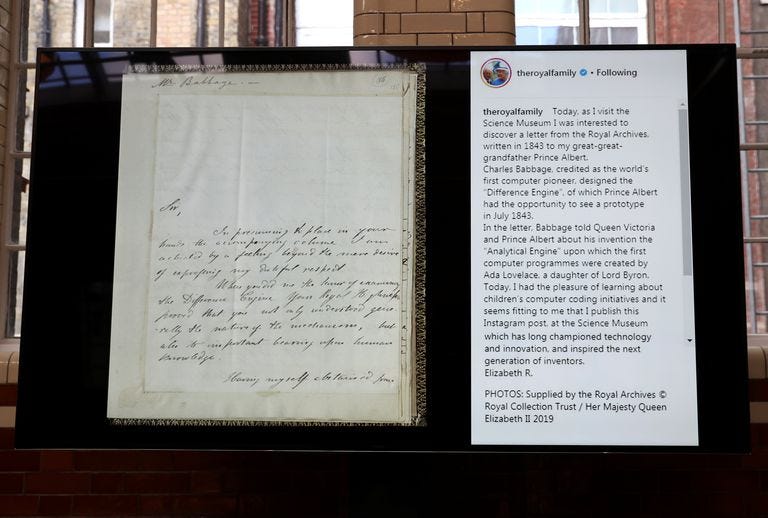 Mr. Babbage. —
Sir,
In presuming to place in your
hands the accompanying volume I am
actuated by a feeling beyond the mere desire
of expressing my dutiful respect
When you did me the honor of examining
the Difference Engine Your Royal Highness
proved that you not only understood gene-
rally the nature of the mechanism, but
also its important bearing upon human
knowledge.
Having myself abstained from
theroyalfamily • Following
theroyalfamily Today, as I visit the
Science Museum I was interested to
discover a letter from the Royal Archives,
written in 1843 to my great-great-
grandfather Prince Albert.
Charles Babbage, credited as the world's
first computer pioneer, designed the
"Difference Engine", of which Prince Albert
had the opportunity to see a prototype
in July 1843.
In the letter, Babbage told Queen Victoria
and Prince Albert about his invention the
"Analytical Engine" upon which the first
computer programmes were created by
Ada Lovelace, a daughter of Lord Byron.
Today, I had the pleasure of learning about
children's computer coding initiatives and it
seems fitting to me that I publish this
Instagram post, at the Science Museum
which has long championed technology
and innovation, and inspired the next
generation of inventors.
Elizabeth R.
PHOTOS: Supplied by the Royal Archives ©
Royal Collection Trust / Her Majesty Queen
Elizabeth II 2019